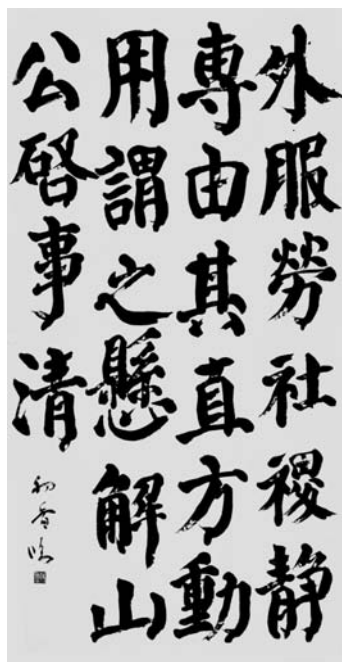 外服勞社稷静
専由其直方動
用謂之懸解山
公啓事清